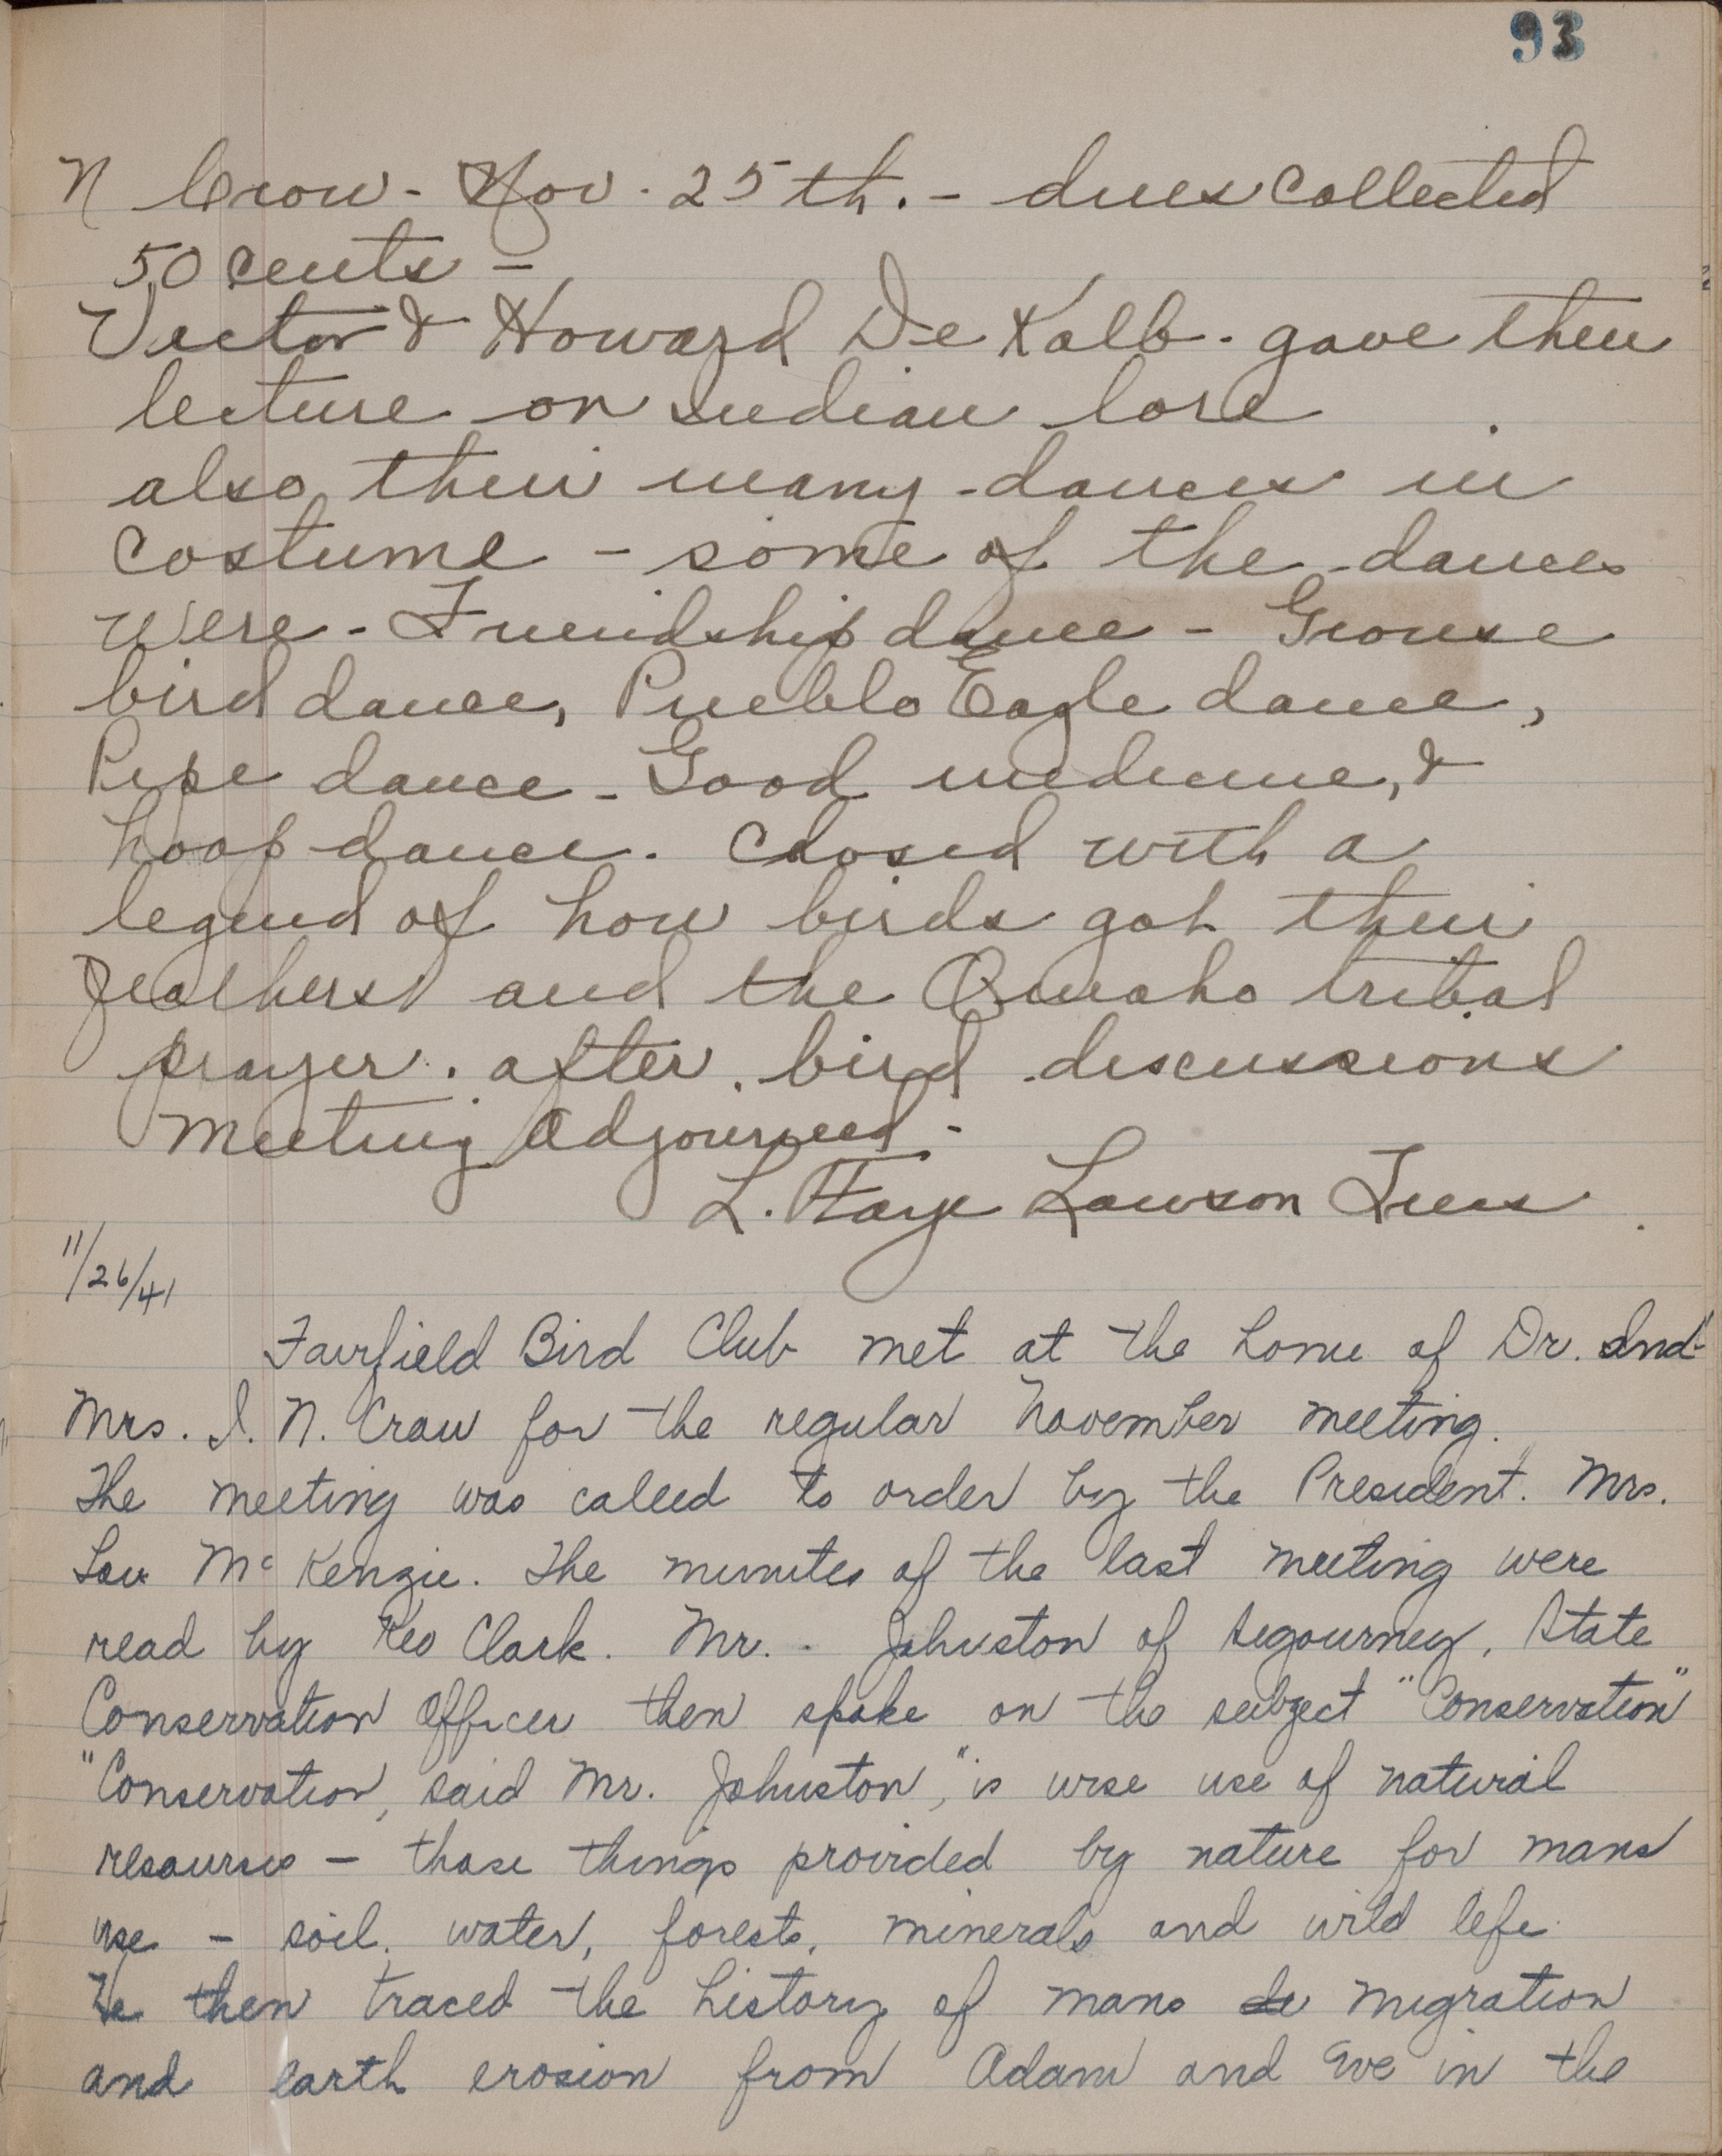 93
N Crow - Nov. 25th. - dues collected
50 cents -
Victor & Howard De Kalb - gave their
lecture on Indian lore
also their many dances in
costume - some of the dances
were - Friendship dance - Grouse
bird dance, Pueblo Eagle dance,
Pipe dance - Good medicine, &
hoop dance. Closed with a
legend of how birds got their
feathers and the Omaho tribal
prayer. after bird discussions
meeting adjourned -
L. Faye Lawson Treas
11/26/41
Fairfield Bird Club met at the home of Dr. and
Mrs. I. N. Crow for the regular November meeting.
The meeting was called to order by the President. Mrs.
Lou McKenzie. The minutes of the last meeting were
read by Keo Clark. Mr. Johnston of Sigourney, State
Conservation Officer then spoke on the subject "Conservation"
"Conservation, said Mr. Johnston, "is wise use of natural
resourses - those things provided by nature for mans
use - soil, water, forests, minerals and wild life.
He then traced the history of mans migration
and earth erosion from Adam and Eve in the